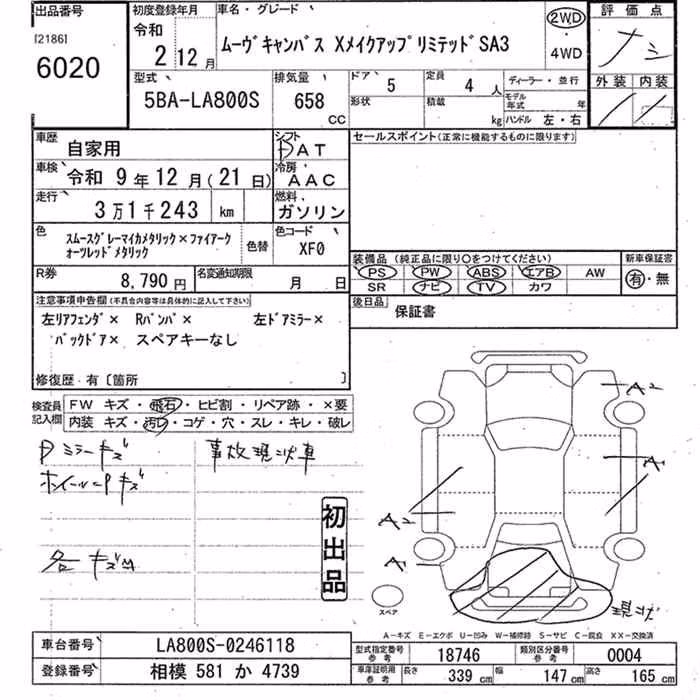 出品番号
[2186]
6020
初度登録年月
令和
2年12月
車名・グレード
ムーヴキャンバス XメイクアップリミテッドSA3
2WD
・
4WD
評価点
ナシ
外装 内装
型式
5BA-LA800S
排気量
658
CC
ドア
5
定員
4人
形状
積載
kg
ディーラー・並行
モデル年式 年
ハンドル 左・右
車歴
自家用
シフト
AT
車検
令和 9年12月(21日)
冷房
AAC
走行
3万1千243 km
燃料
ガソリン
色
スムースグレーマイカメタリック×ファイアーク
オーツレッドメタリック
色替
色コード
XF0
R券
8,790円
名変通知期限
月 日
セールスポイント(正常に機能するものに限ります)
装備品 (純正品に限り○をつけてください)
PS PW ABS エアB AW
SR ナビ TV カワ
新車保証書
有・無
後日品
保証書
注意事項申告欄(不具合内容等は具体的に記入して下さい)
左リアフェンダ× Rバンパ× 左ドアミラー×
バックドア× スペアキーなし
修復歴・有〔箇所 〕
検査員記入欄
FW キズ・飛石・ヒビ割・リペア跡・×要
内装 キズ・汚レ・コゲ・穴・スレ・キレ・破レ
Pミラーキズ
ホイールPキズ
各キズ
事故現状車
初出品
A2
A1
A2
A1
現状
スペア
A-キズ E-エクボ U-凹み W-補修跡 S-サビ C-腐食 XX-交換済
車台番号
LA800S-0246118
登録番号
相模 581 か 4739
型式指定番号
参考
18746
類別区分番号
参考
0004
車庫証明用
参考
長さ 339cm 幅 147cm 高さ 165cm